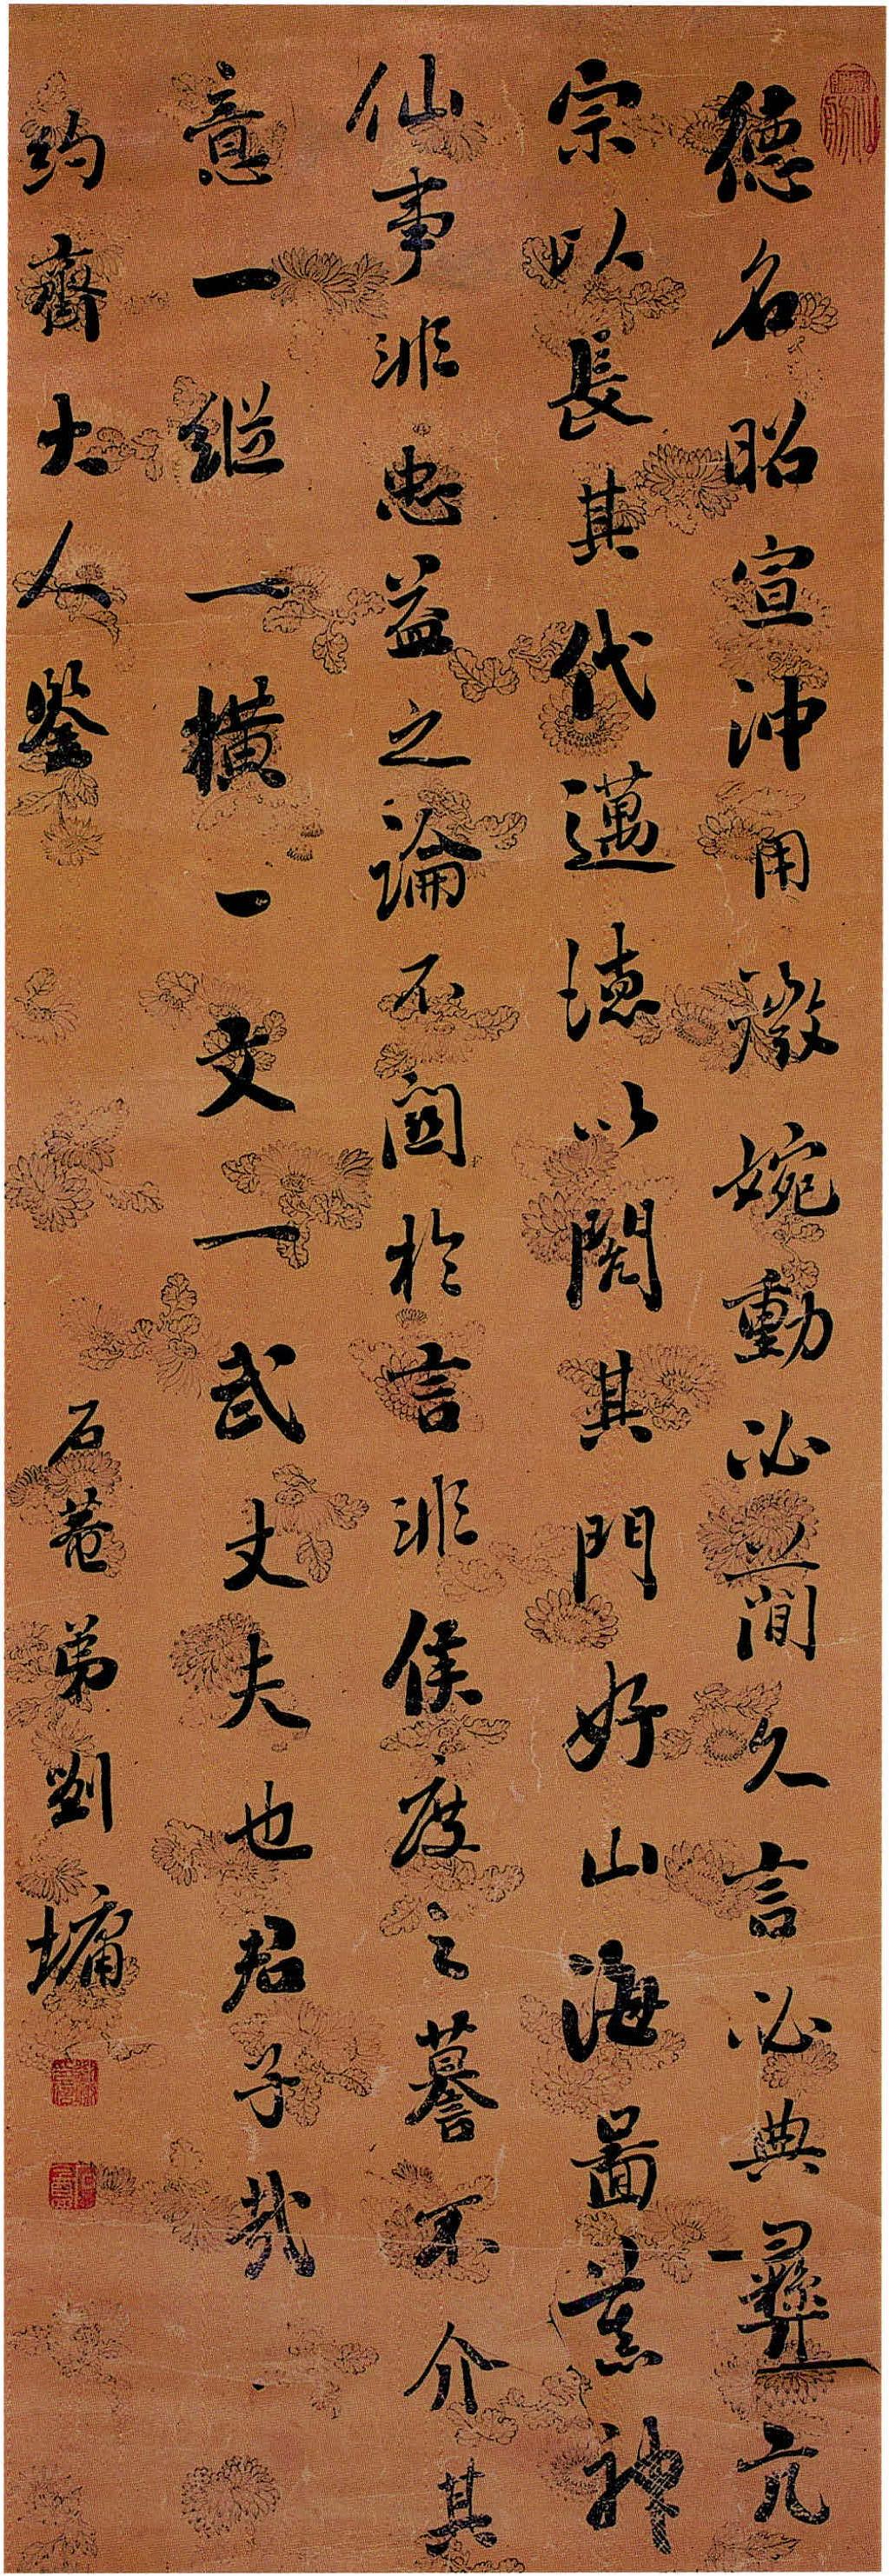 德名昭宣沖用徽婉動必簡久言必典彝亢
宗以長其代邁德以閎其門好山海圖慕神
仙事非忠益之論不關於言非侯度之謩不介其
意一縱一橫一文一武丈夫也君子哉
約齋大人鑒 石菴弟劉墉